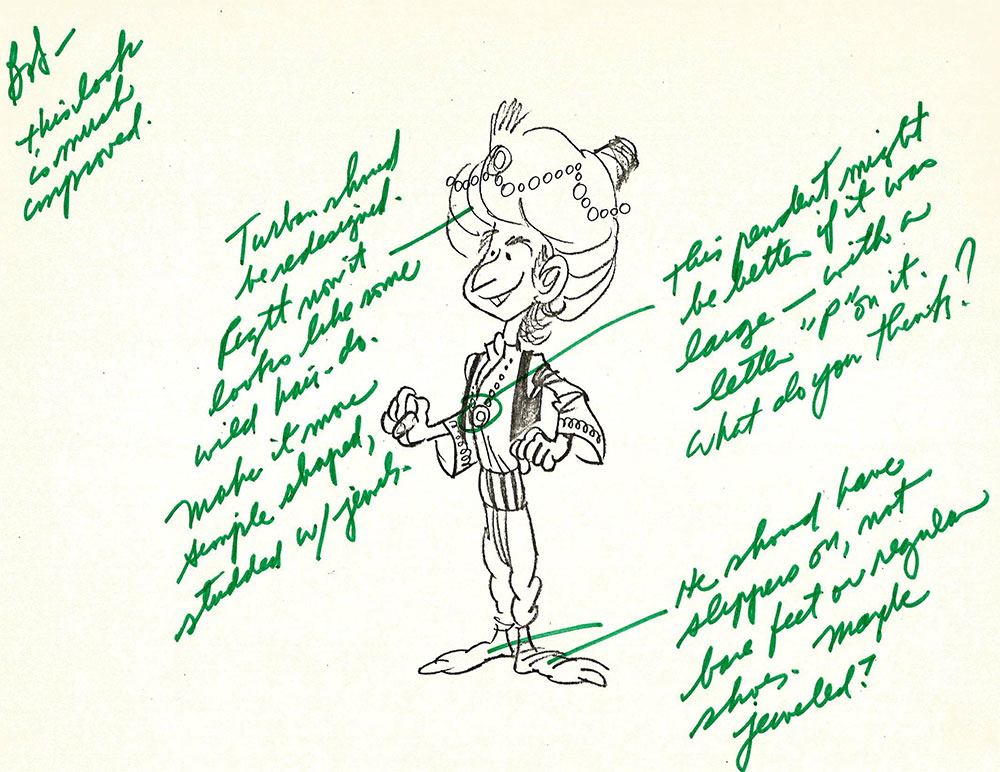 Bob—
this look
is much
improved.
Turban should
be redesigned.
Right now it
looks like some
wild hair-do.
Make it more
simple shaped,
studded w/ jewels.
This pendent might
be better if it was
large — with a
letter "P" on it.
What do you think?
He should have
slippers on, not
bare feet or regular
shoes. Maybe
jeweled?